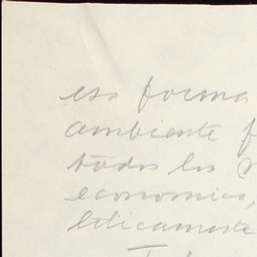 eso forma
ambiente f
todos los
economico,
liticamente